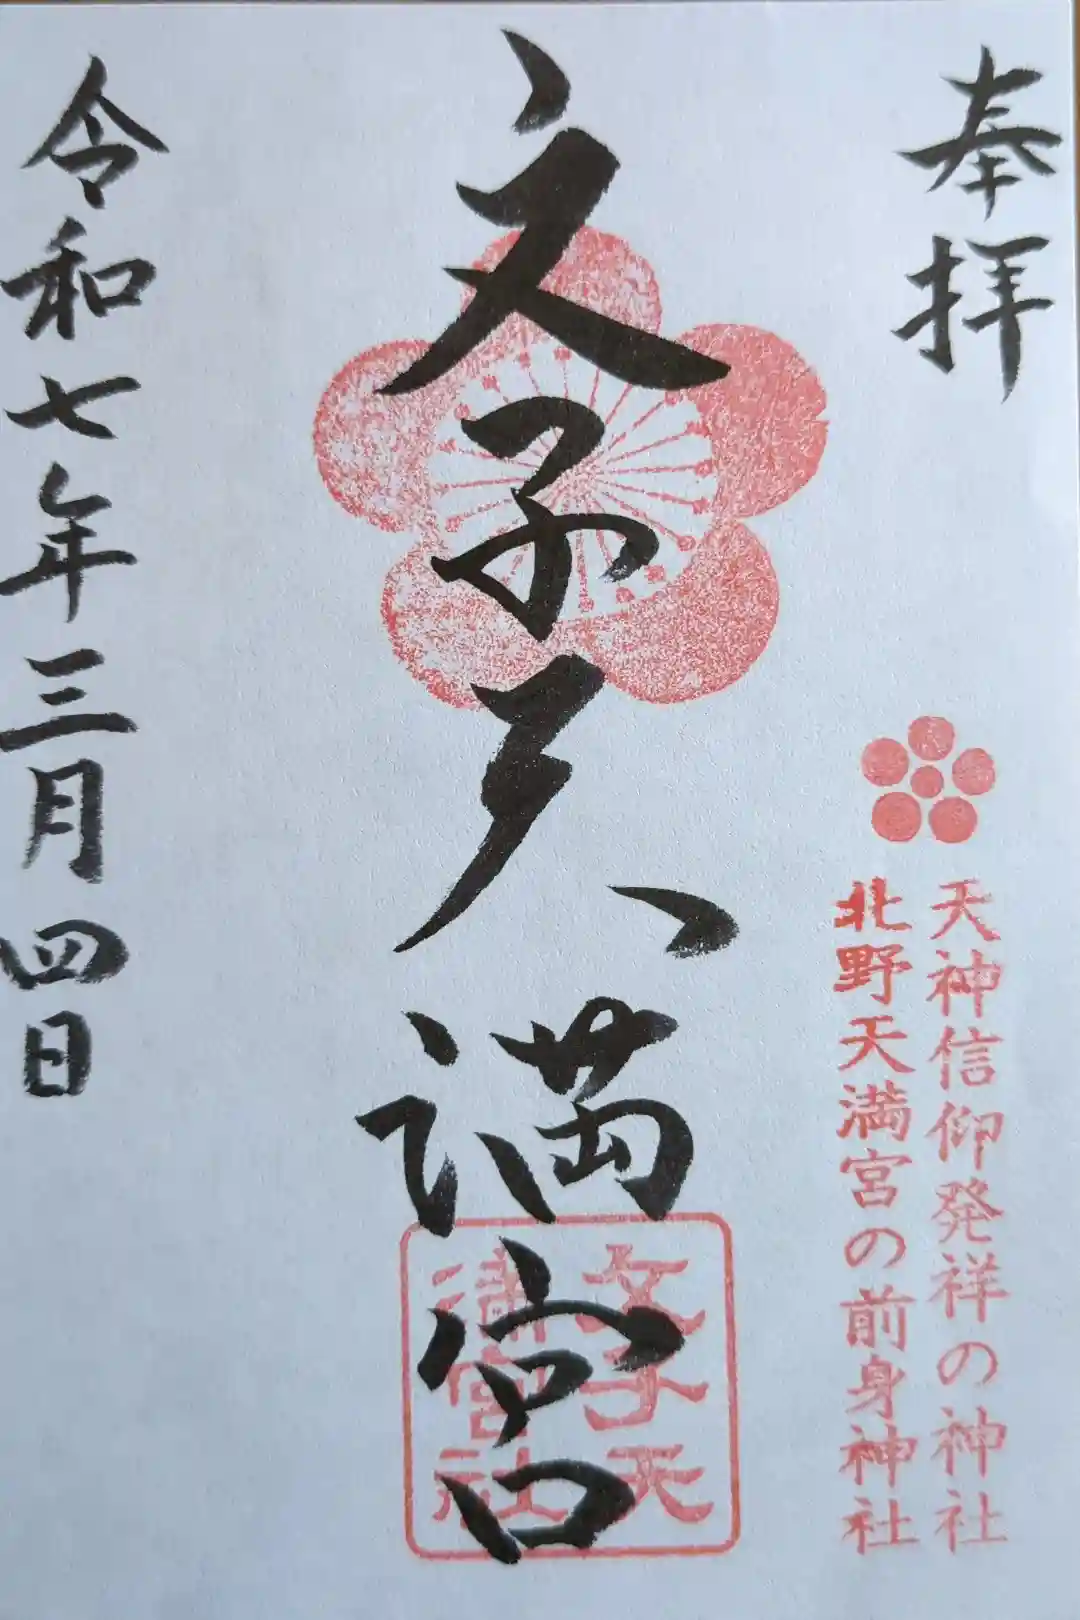 奉拝
天神信仰発祥の神社
北野天満宮の前身神社
文子天満宮
文子天
満宮社
令和七年三月四日